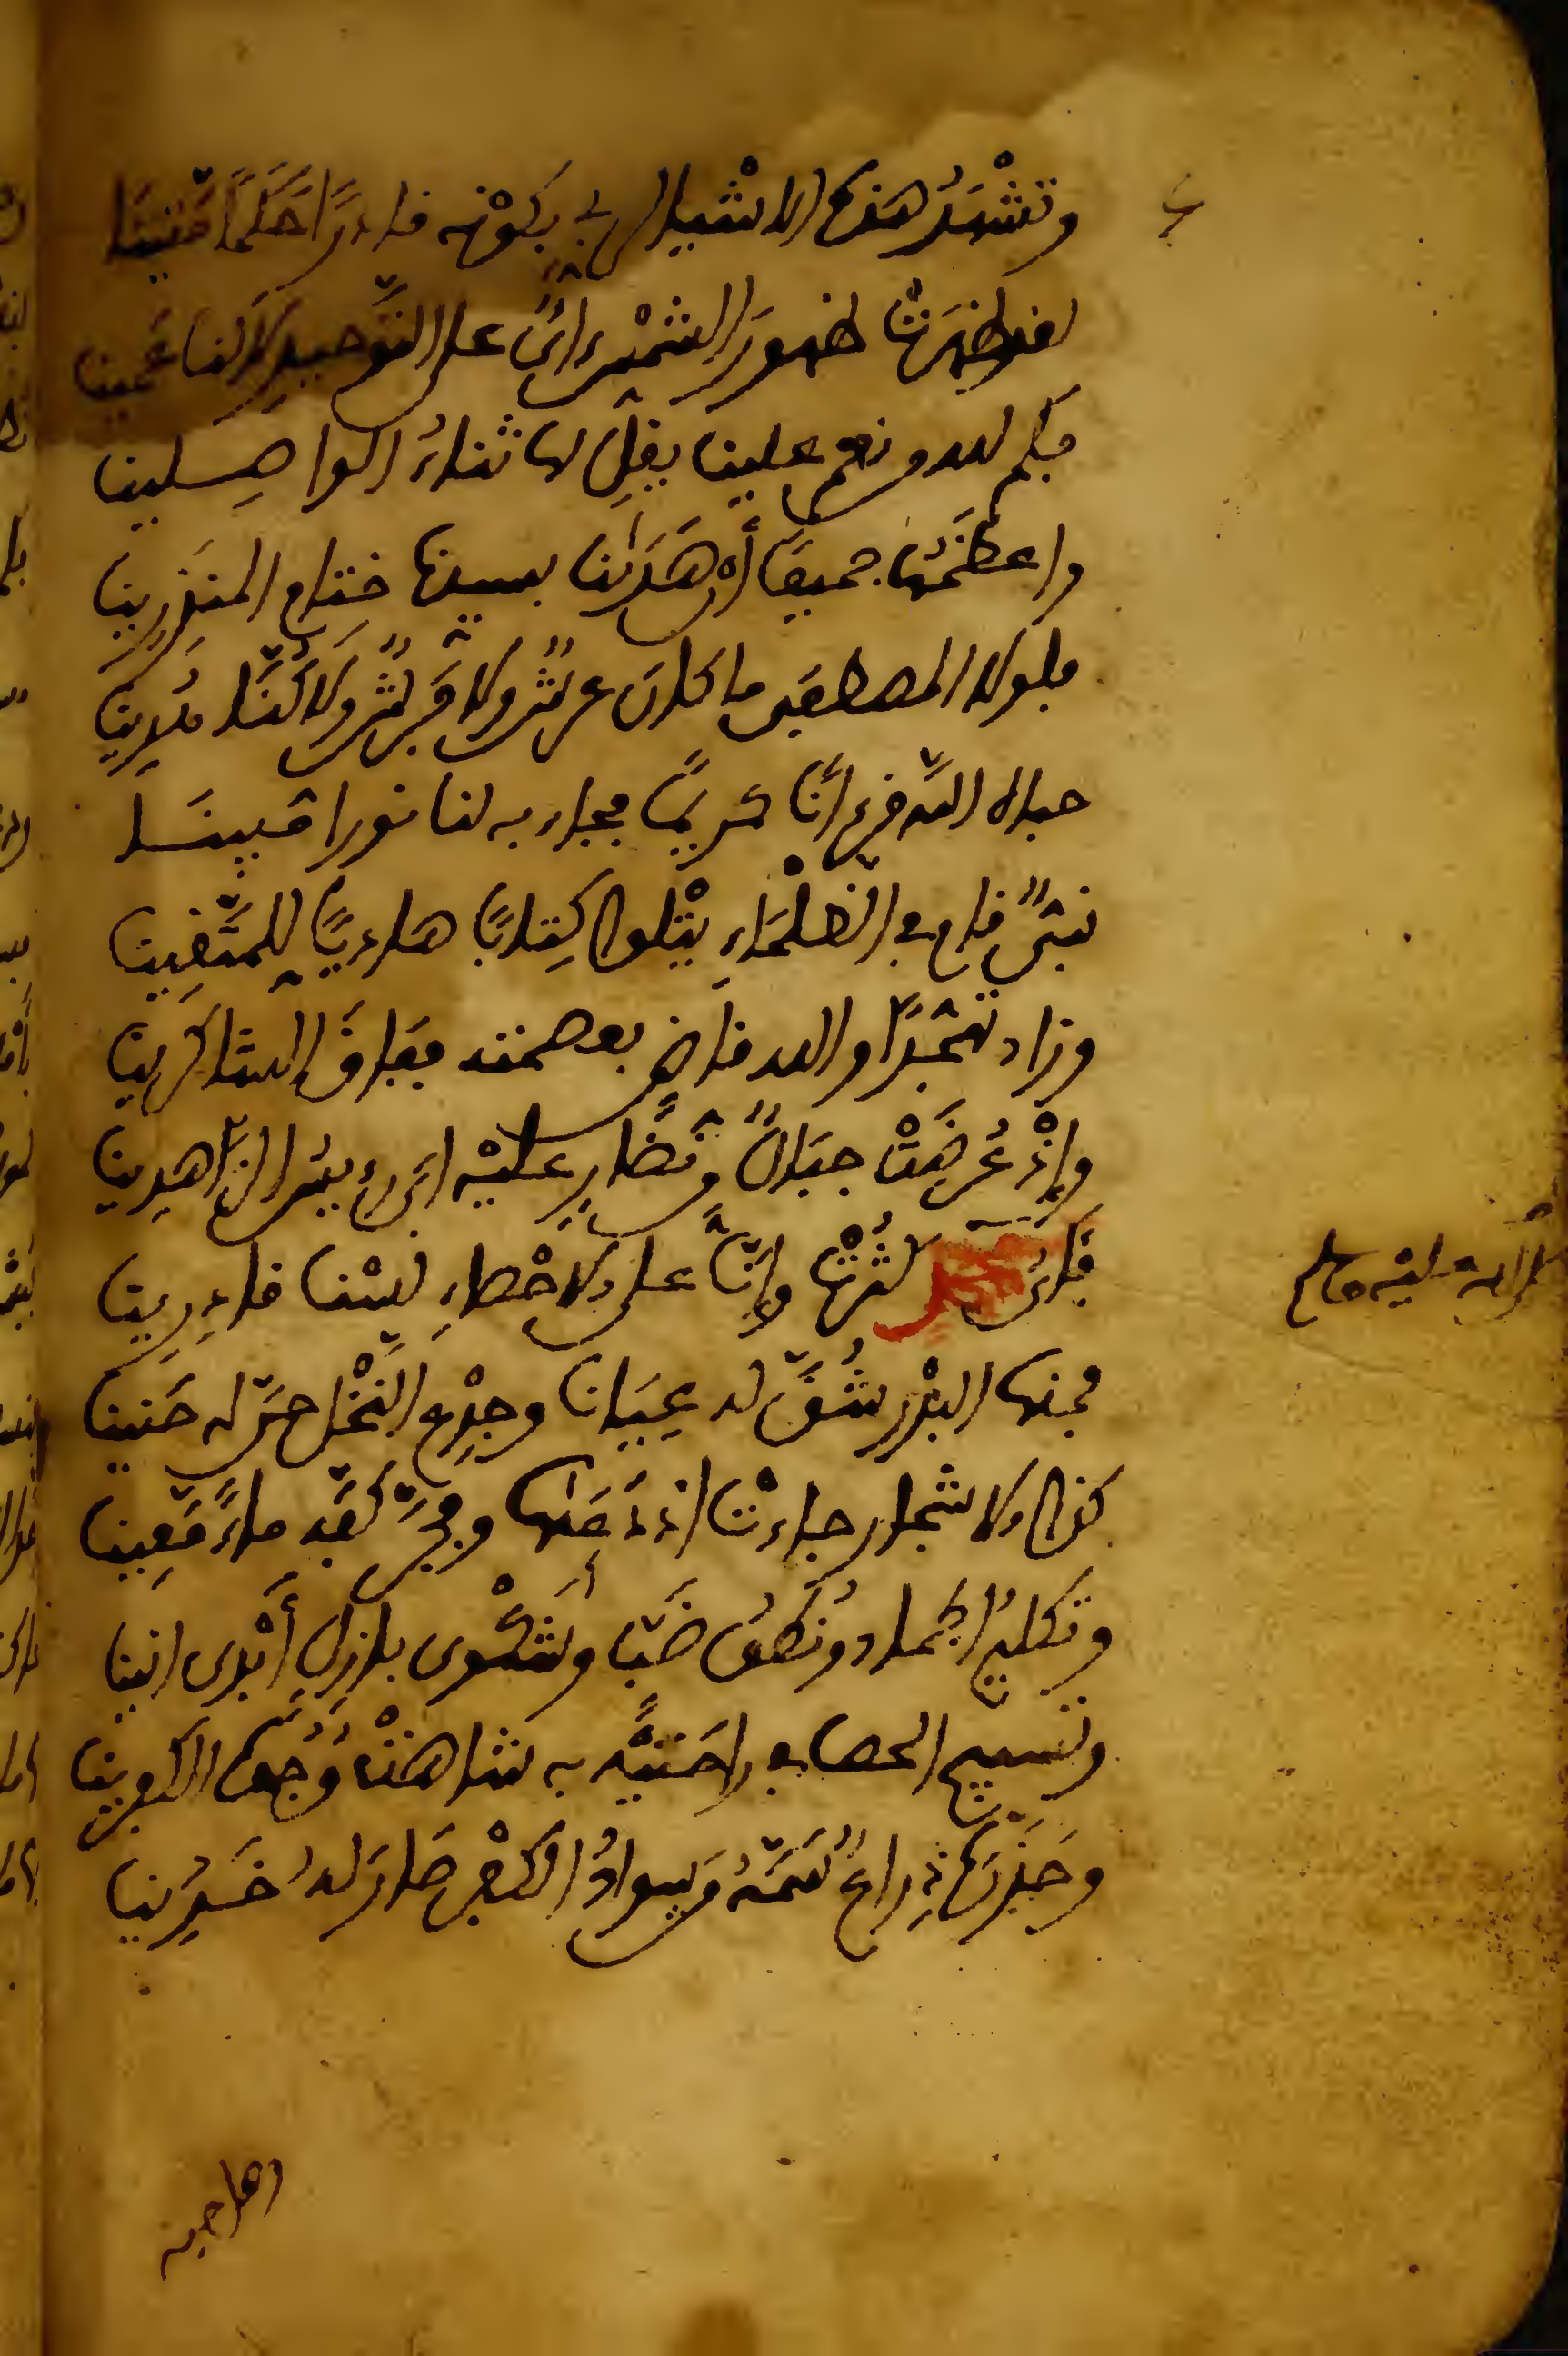 وتَشْهَدُ هَذه الاشْيا لربي بكَوْنه قادرًا حَكَمًا مَتِينَا
لقد ظهَرَتْ ظهورَ الشمْس اىٌ على التَّوحيدِ لاكنا عَمينا
فكم لله من نعم علينا يقِلّ لها ثناءُ الواصِلينا
واعظَمُها جميعًا أن هَدَانا بسيدنا ختام المنذِرِينا
فلولا المصطفى ما كانَ عرشٌ ولا فَرشٌ ولا كُنَّا مُدِينا
حباه اللَّه قرءانًا كريمًا فجاء به لنا نورا مّبينَا
نبىٌّ قام في الظلْمَاءِ يتْلوا كِتابًا هاديًا للمتَّقِينا
وزاد تهجّدًا والله قاض بعصمته ففاقَ الشاكرينا
وإذْ عُرِضَتْ جبَالٌ مّن نُّضَارٍ عليْه ابى فيُسرُ الزَّاهِدِينا
فاىُ كثُرْتْ وإنَّا على الاحْصاءِ لسْنا قادِرِينا
صلى الله عليه وسلم
فمنها البدْر شُقَّ له عِيَانا وجِذْع النَّخْل حنَّ له حَنينا
كذا الاشجار جاءتْ اذ دَعَاها وفجَّر كفّه ماءً مَّعِينا
وتكليمُ الجماد ونطقُ ضَبّ وشكْوى بازلٍ أبْدى انينا
وتسبيح الحصا في راحَتيْه به شاهتْ وُجُوهُ الكافرينا
وخَبَّرَهُ ذِراعٌ سَمَّهُ مَن سوادُ الكفْرِ صارَ لهُ خَدِينا